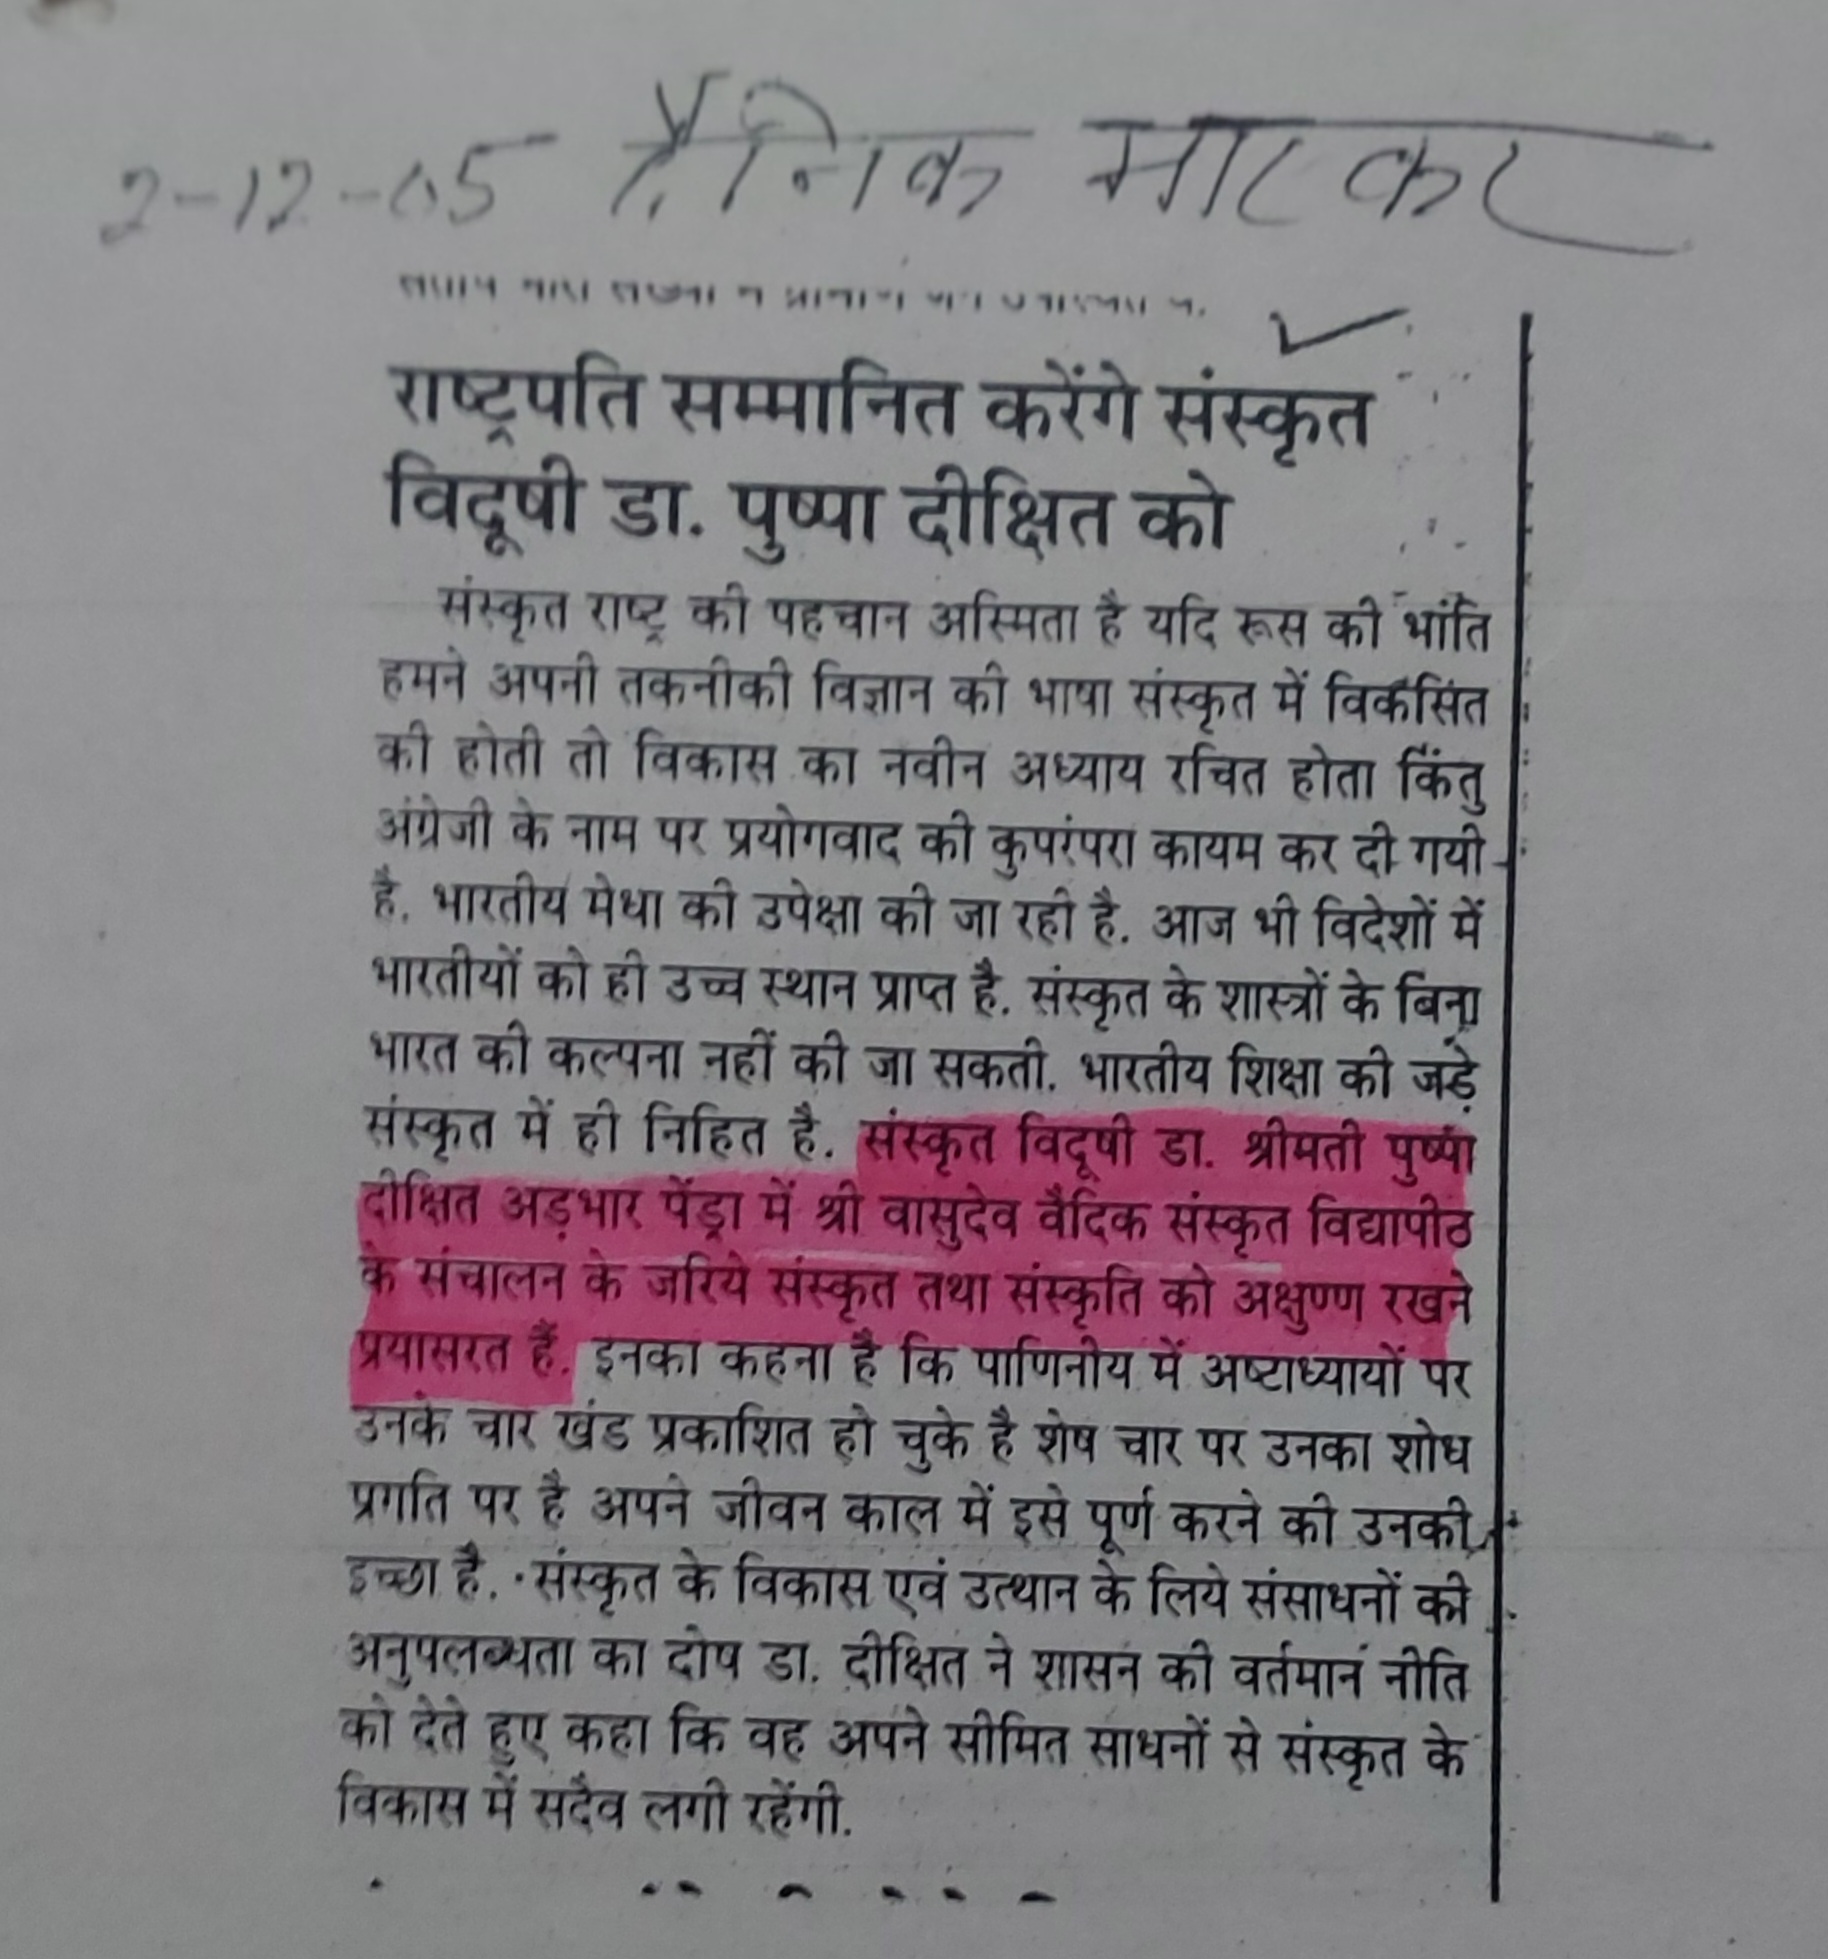 2-12-05 दैनिक भास्कर
राष्ट्रपति सम्मानित करेंगे संस्कृत
विदूषी डा. पुष्पा दीक्षित को
संस्कृत राष्ट्र की पहचान अस्मिता है यदि रूस की भांति
हमने अपनी तकनीकी विज्ञान की भाषा संस्कृत में विकसित
की होती तो विकास का नवीन अध्याय रचित होता किंतु
अंग्रेजी के नाम पर प्रयोगवाद की कुपरंपरा कायम कर दी गयी
है. भारतीय मेधा की उपेक्षा की जा रही है. आज भी विदेशों में
भारतीयों को ही उच्च स्थान प्राप्त है. संस्कृत के शास्त्रों के बिना
भारत की कल्पना नहीं की जा सकती. भारतीय शिक्षा की जड़े
संस्कृत में ही निहित है. संस्कृत विदूषी डा. श्रीमती पुष्पा
दीक्षित अड़भार पेंड्रा में श्री वासुदेव वैदिक संस्कृत विद्यापीठ
के संचालन के जरिये संस्कृत तथा संस्कृति को अक्षुण्ण रखने
प्रयासरत हैं. इनका कहना है कि पाणिनीय में अष्टाध्यायों पर
उनके चार खंड प्रकाशित हो चुके है शेष चार पर उनका शोध
प्रगति पर है अपने जीवन काल में इसे पूर्ण करने की उनकी
इच्छा है. संस्कृत के विकास एवं उत्थान के लिये संसाधनों की
अनुपलब्धता का दोष डा. दीक्षित ने शासन की वर्तमान नीति
को देते हुए कहा कि वह अपने सीमित साधनों से संस्कृत के
विकास में सदैव लगी रहेंगी.